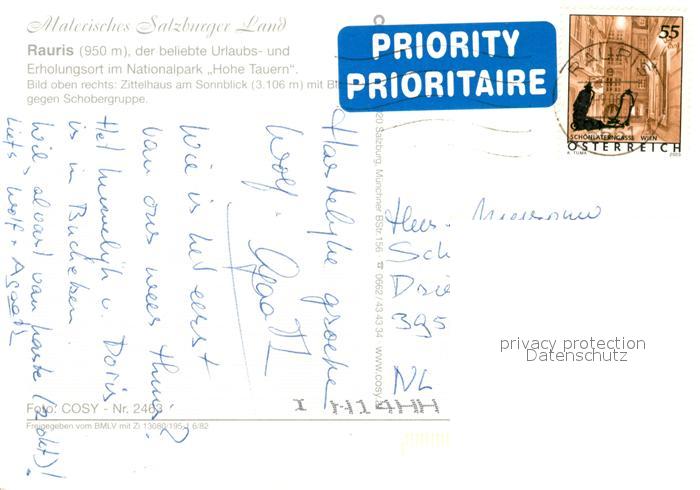 Malerisches Salzburger Land
Rauris (950 m), der beliebte Urlaubs- und
Erholungsort im Nationalpark „Hohe Tauern".
Bild oben rechts: Zittelhaus am Sonnblick (3.106 m) mit Bl
gegen Schobergruppe.
PRIORITY
PRIORITAIRE
55
SCHÖNLATERNGASSE WIEN
ÖSTERREICH
A. TUMA 2003
Hartelijke groeten
Wolf.
Wie is het eerst
van ons weer thuis?
Het huwelijk v. Doris
is in Bucheben
Wil, alvast van harte (2 okt)!
Liefs Wolf +
Sch
Drie
395
NL
5020 Salzburg, Münchner BStr. 156 ☎ 0662/43 43 34 www.cosy.
privacy protection
Datenschutz
Foto: COSY - Nr. 2463
Freigegeben vom BMLV mit Zl 13080/195-1.6/82